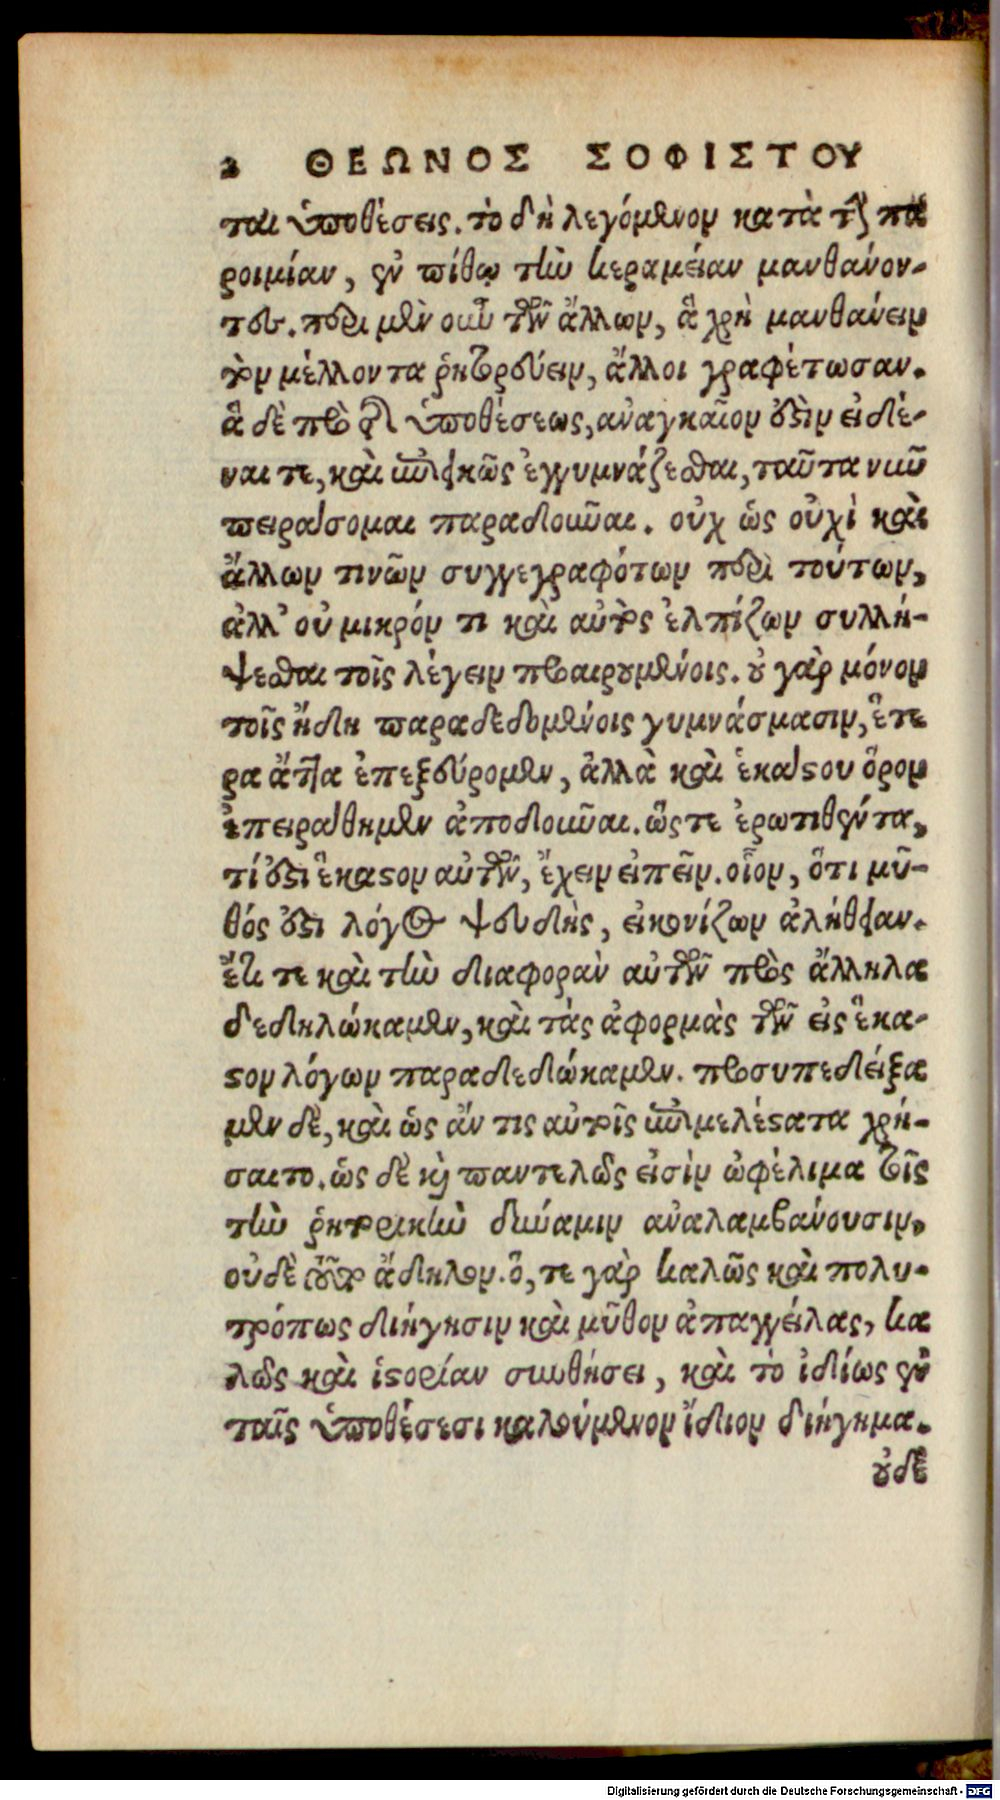 2 ΘΕΩΝΟΣ ΣΟΦΙΣΤΟΥ
ται ὑποθέσεις. τὸ δὴ λεγόμενον κατὰ τὴν πα
ροιμίαν, ἐν πίθῳ τὴν κεραμείαν μανθάνον-
τες. περὶ μὲν οὖν τῶν ἄλλων, ἃ χρὴ μανθάνειν
τὸν μέλλοντα ῥητορεύειν, ἄλλοι γραφέτωσαν.
ἃ δὲ πρὸ τῆς ὑποθέσεως, ἀναγκαῖον ἐστὶν εἰδέ-
ναι τε, καὶ ἐπιεικῶς ἐγγυμνάζεσθαι, ταῦτα νῦν
πειράσομαι παραδοῦναι. οὐχ ὡς οὐχὶ καὶ
ἄλλων τινῶν συγγεγραφότων περὶ τούτων,
ἀλλ' οὐ μικρόν τι καὶ αὐτὸς ἐλπίζων συλλή-
ψεσθαι τοῖς λέγειν προαιρουμένοις. οὐ γὰρ μόνον
τοῖς ἤδη παραδεδομένοις γυμνάσμασιν, ἕτε
ρα ἄττα ἐπεξεύρομεν, ἀλλὰ καὶ ἑκάστου ὅρον
ἐπειράθημεν ἀποδοῦναι. ὥστε ἐρωτηθέντα,
τί ἐστι ἕκαστον αὐτῶν, ἔχειν εἰπεῖν. οἷον, ὅτι μῦ-
θός ἐστι λόγος ψευδὴς, εἰκονίζων ἀλήθειαν.
ἔτι τε καὶ τὴν διαφορὰν αὐτῶν πρὸς ἄλληλα
δεδηλώκαμεν, καὶ τὰς ἀφορμὰς τῶν εἰς ἕκα-
στον λόγων παραδεδώκαμεν. προσυπεδείξα
μεν δὲ, καὶ ὡς ἄν τις αὐτοῖς ἐπιμελέστατα χρή-
σαιτο. ὡς δὲ καὶ παντελῶς εἰσὶν ὠφέλιμα τοῖς
τὴν ῥητορικὴν δύναμιν ἀναλαμβάνουσιν,
οὐδὲ τοῦτο ἄδηλον. ὅ, τε γὰρ καλῶς καὶ πολυ-
τρόπως διήγησιν καὶ μῦθον ἀπαγγείλας, κα
λῶς καὶ ἱστορίαν συνθήσει, καὶ τὸ ἰδίως ἐν
ταῖς ὑποθέσεσι καλούμενον ἴδιον διήγημα.
οὐδὲ
Digitalisierung gefördert durch die Deutsche Forschungsgemeinschaft - DFG